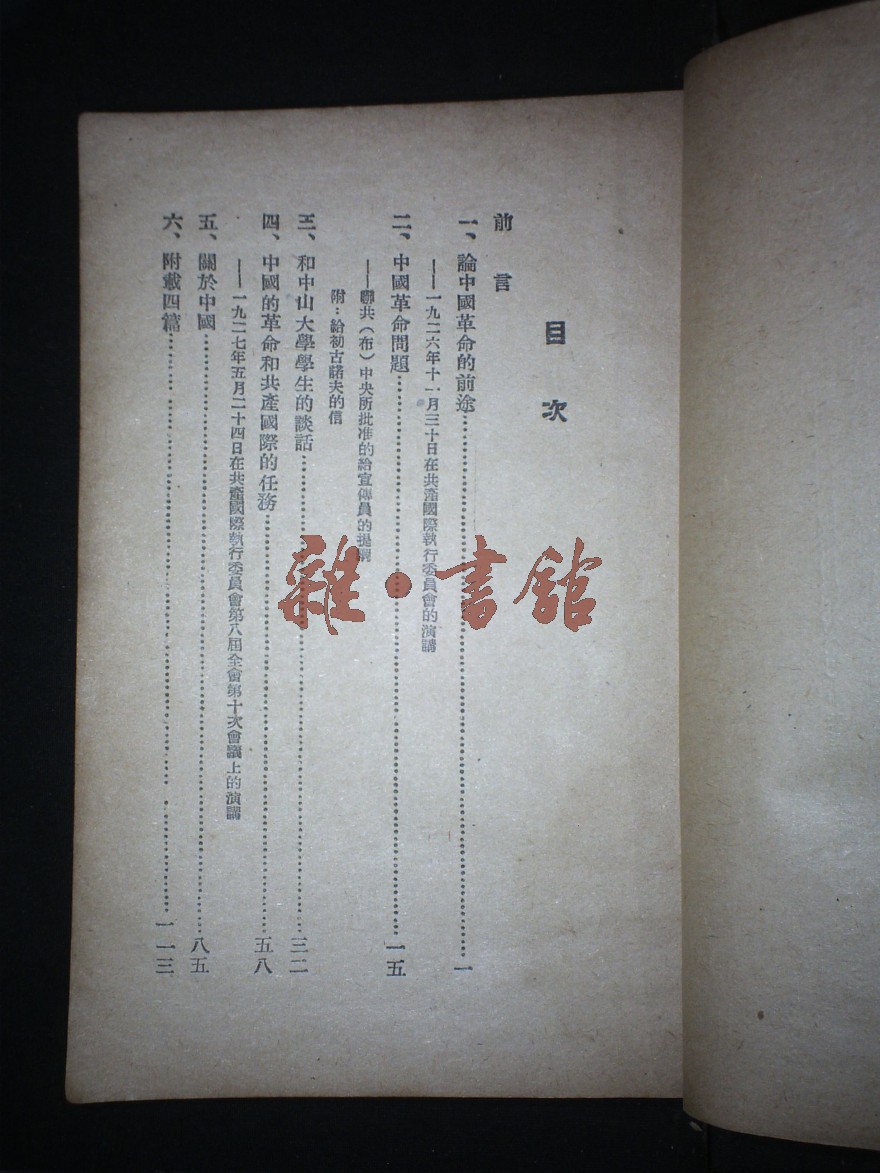 目次
前言
一、論中國革命的前途……一
——一九二六年十一月三十日在共產國際執行委員會的演講
二、中國革命問題……一五
——聯共（布）中央所批准的給宣傳員的提綱
附：給初古諾夫的信
三、和中山大學學生的談話……三二
四、中國的革命和共產國際的任務……五八
——一九二七年五月二十四日在共產國際執行委員會第八屆全會第十次會議上的演講
五、關於中國……八五
六、附載四篇……一一三
雜·書館